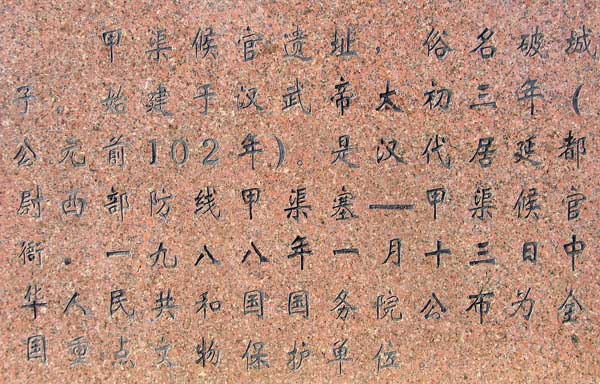 甲渠候官遗址，俗名破城
子。始建于汉武帝太初三年(
公元前102年)。是汉代居延都
尉西部防线甲渠塞—甲渠候官
衙。一九八八年一月十三日中
华人民共和国国务院公布为全
国重点文物保护单位。